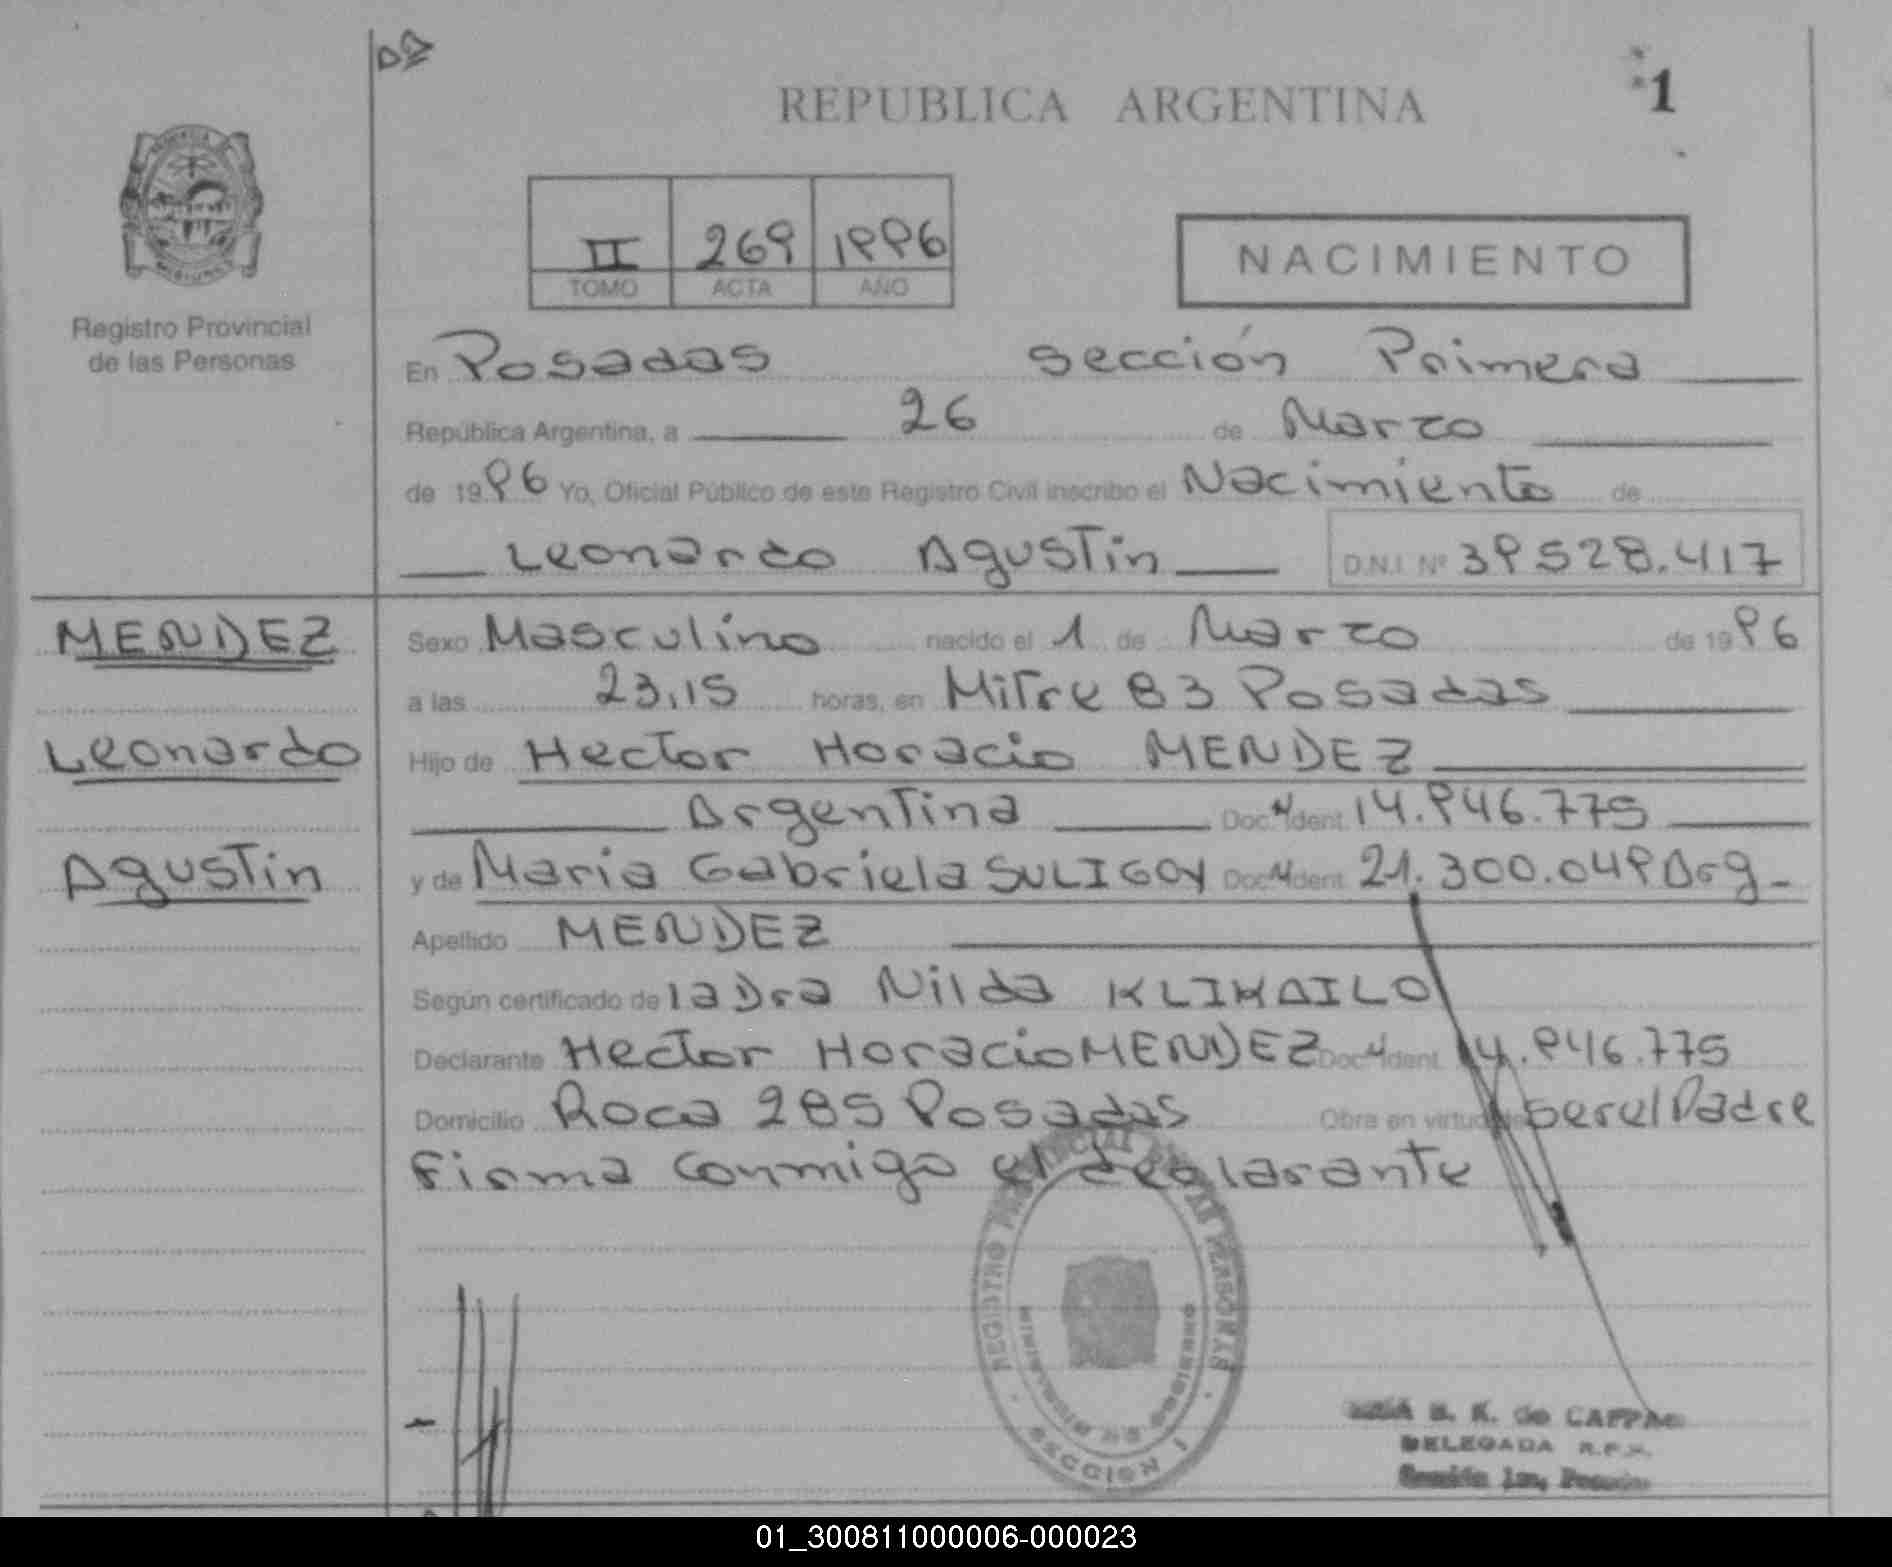 REPUBLICA ARGENTINA
1
II 269 1996
TOMO ACTA AÑO
NACIMIENTO
Registro Provincial
de las Personas
En Posadas sección Primera
República Argentina, a 26 de Marzo
de 1996 Yo, Oficial Público de este Registro Civil inscribo el Nacimiento de
Leonardo Agustin D.N.I. Nº 39528.417
MENDEZ
Leonardo
Agustin
Sexo Masculino nacido el 1 de Marzo de 1996
a las 23,15 horas, en Mitre 83 Posadas
Hijo de Hector Horacio MENDEZ
Argentina Doc. N Ident. 14.946.775
y de Maria Gabriela SULIGOY Doc. N Ident. 21.300.049 Arg-
Apellido MENDEZ
Según certificado de la Dra Nilda KLIKAILO
Declarante Hector Horacio MENDEZ Doc. N Ident. 14.946.775
Domicilio Roca 285 Posadas Obra en virtud de ser el Padre
Firma conmigo el declarante
REGISTRO PROVINCIAL DE LAS PERSONAS
MINISTERIO DE GOBIERNO
SECCION 1
B. K. de
DELEGADA R.P.P.
01_300811000006-000023